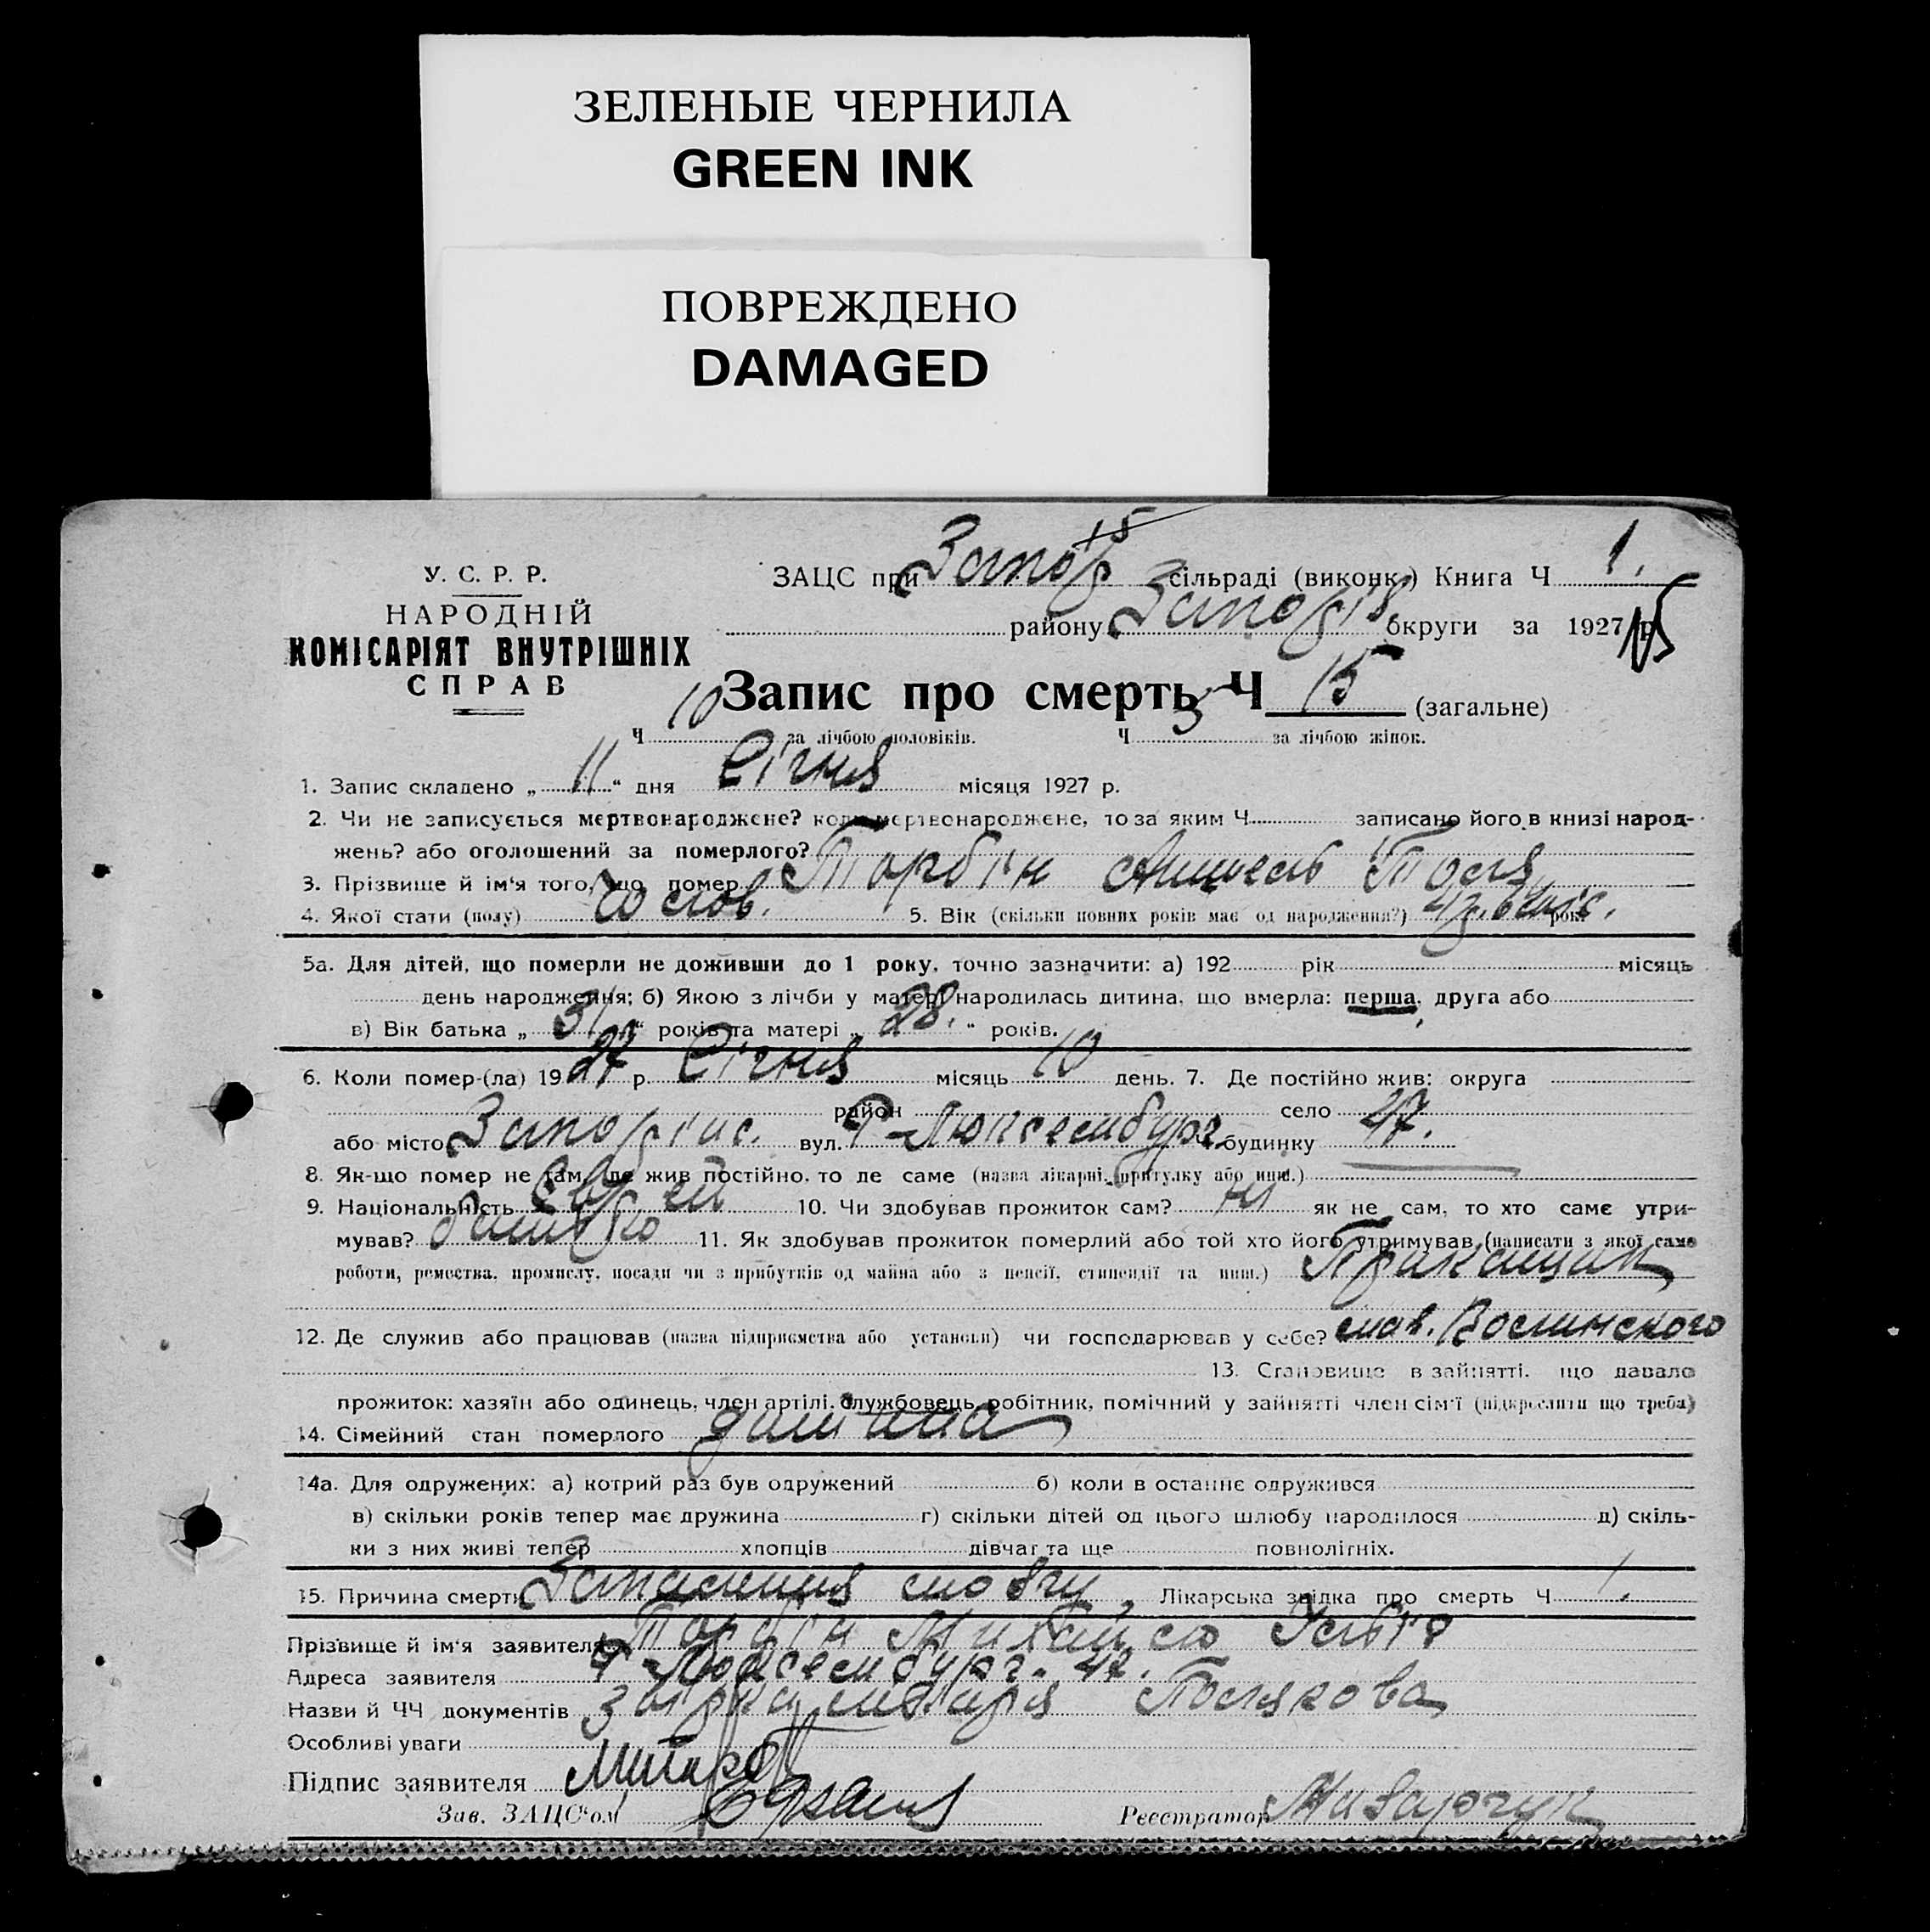 ЗЕЛЕНЫЕ ЧЕРНИЛА
GREEN INK
ПОВРЕЖДЕНО
DAMAGED
У. С. Р. Р.
НАРОДНІЙ
КОМІСАРІЯТ ВНУТРІШНІХ
СПРАВ
15
ЗАЦС при Запор сільраді (виконк.) Книга Ч 1.
району Запоріз округи за 1927 р.
Запис про смерть Ч 15 (загальне)
Ч 10 за лічбою чоловіків. Ч 3 за лічбою жінок.
1. Запис складено „ 11 “ дня Січня місяця 1927 р.
2. Чи не записується мертвонароджене? коли мертвонароджене, то за яким Ч записано його в книзі народ-
жень? або оголошений за померлого?
3. Прізвище й ім'я того, що помер Торбін
4. Якої стати (полу) чолов. 5. Вік (скільки повних років має од народження?) 4р. 6 міс. рок
5а. Для дітей, що померли не доживши до 1 року, точно зазначити: а) 192 рік місяць
день народження; б) Якою з лічби у матері народилась дитина, що вмерла: перша, друга або
в) Вік батька „ 31 “ років та матері „ 28. “ років.
6. Коли помер-(ла) 1927 р. Січня місяць 10 день. 7. Де постійно жив: округа
район село
або місто Запоріжж. вул. Р-Люксембург Ч будинку 47.
8. Як-що помер не там, де жив постійно, то де саме (назва лікарні, притулку або инш.)
9. Національність Єврей 10. Чи здобував прожиток сам? ні як не сам, то хто саме утри-
мував? батько 11. Як здобував прожиток померлий або той хто його утримував (написати з якої саме
роботи, ремества, промислу, посади чи з прибутків од майна або з пенсії, стипендії та инш.)
12. Де служив або працював (назва підприємства або установи) чи господарював у себе?
13. Становище в зайнятті, що давало
прожиток: хазяїн або одинець, член артілі, службовець, робітник, помічний у зайнятті член сім'ї (підкреслити що треба)
14. Сімейний стан померлого дитина
14а. Для одружених: а) котрий раз був одружений б) коли в останнє одружився
в) скільки років тепер має дружина г) скільки дітей од цього шлюбу народилося д) скіль-
ки з них живі тепер хлопців дівчат та ще повнолітніх.
15. Причина смерти Запалення мозгу, Лікарська звідка про смерть Ч 1.
Прізвище й ім'я заявителя Торбін
Адреса заявителя Р-Люксембург. 47.
Назви й ЧЧ документів звідка лікаря Полякова
Особливі уваги
Підпис заявителя
Зав. ЗАЦС'ом Реєстратор